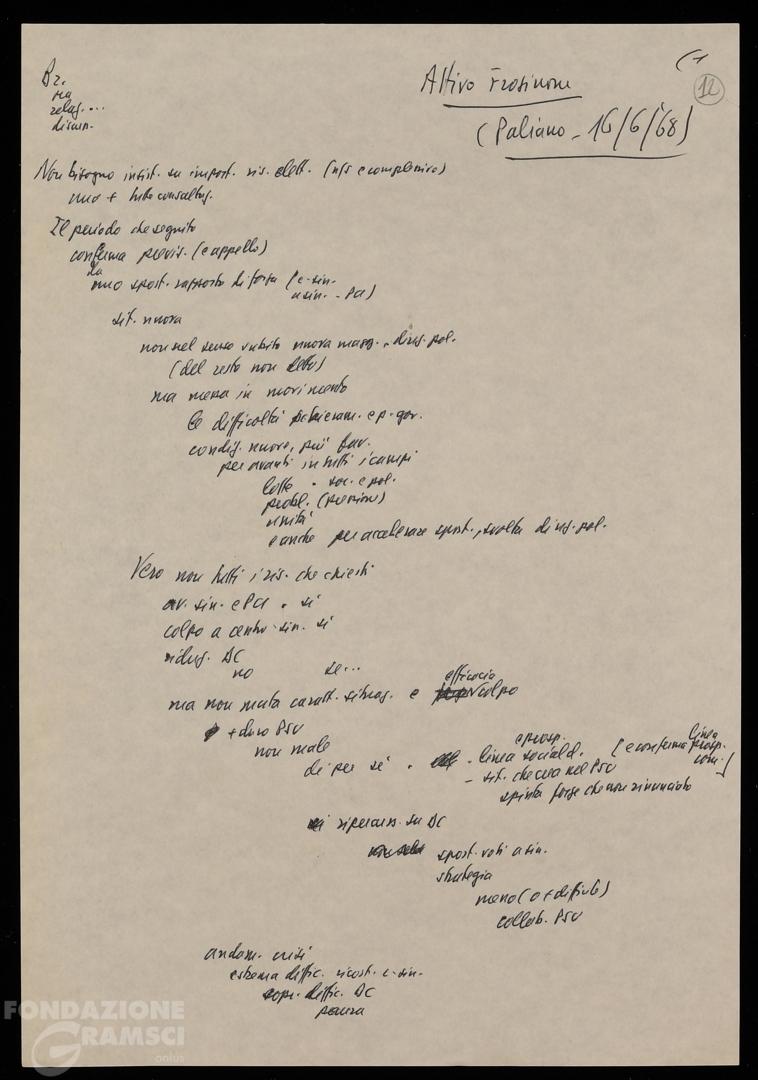 Br.
ma
relaz. ...
discus.
Attivo Frosinone
12
(Paliano - 16/6/'68)
Non bisogno insist. su import. ris. elett. (n/s e complessivo)
uno + tutte consultaz.
Il periodo che seguito
conferma previs. (e appello)
da
nuo spost. rapporto di forza (c-sin.
a sin. - PCI)
sit. nuova
non nel senso subito nuova magg. e direz. pol.
(del resto non detto)
ma messa in movimento
le difficoltà schieram. e p. gov.
condiz. nuove, più fav.
per avanti in tutti i campi
lotte - soc. e pol.
probl. (pensioni)
unità
e anche per accelerare spost., svolta direz. pol.
Vero non tutti i ris. che chiesti
av. sin. e PCI - sì
colpo a centro-sin. sì
riduz. DC
no se...
ma non muta caratt. situaz. e efficacia colpo
+ duro PSU
non male
di per sé - linea sociald. e prosp. (e conferma linea prosp. com.)
- sit. che crea nel PSU
spinta forze che non rinunciato
ripercuss. su DC
spost. voti a sin.
strategia
meno (o + difficile)
collab. PSU
andam. crisi
estrema diffic. ricost. c-sin.
sopr. diffic. DC
paura
FONDAZIONE
GRAMSCI
onlus